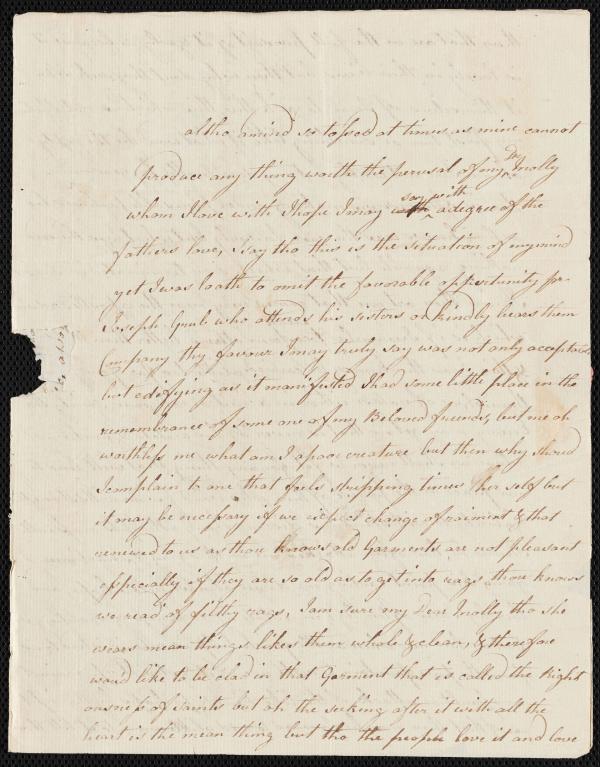 altho amind so tossed at times as mine cannot
produce any thing worth the perusal of my Dr Molly
whom I love with I hope I may say with a degree of the
fathers love, I say tho this is the situation of my mind
yet I was loath to omit the favorable oppertunity pr
Joseph Grub who attends his sisters or kindly bears them
Company thy favour I may truly say was not only acceptable
but edifying as it manifested I had some little place in the
remembrance of some one of my Beloved friends, but me oh
worthless me what am I a poor creature but then why shoud
I complain to one that feels stripping times her self but
it may be necessary if we expect change of raiment & that
renewed to us as thou knows old Garments are not pleasant
esspicially if they are so old as to get into rags thou knows
we read of filthy rags, I am sure my Dear Molly tho she
wears mean things likes them whole & clean, & therefore
would like to be clad in that Garment that is called the Right
ousness of saints but ah the seeking after it with all the
heart is the mean thing but tho the people love it and love